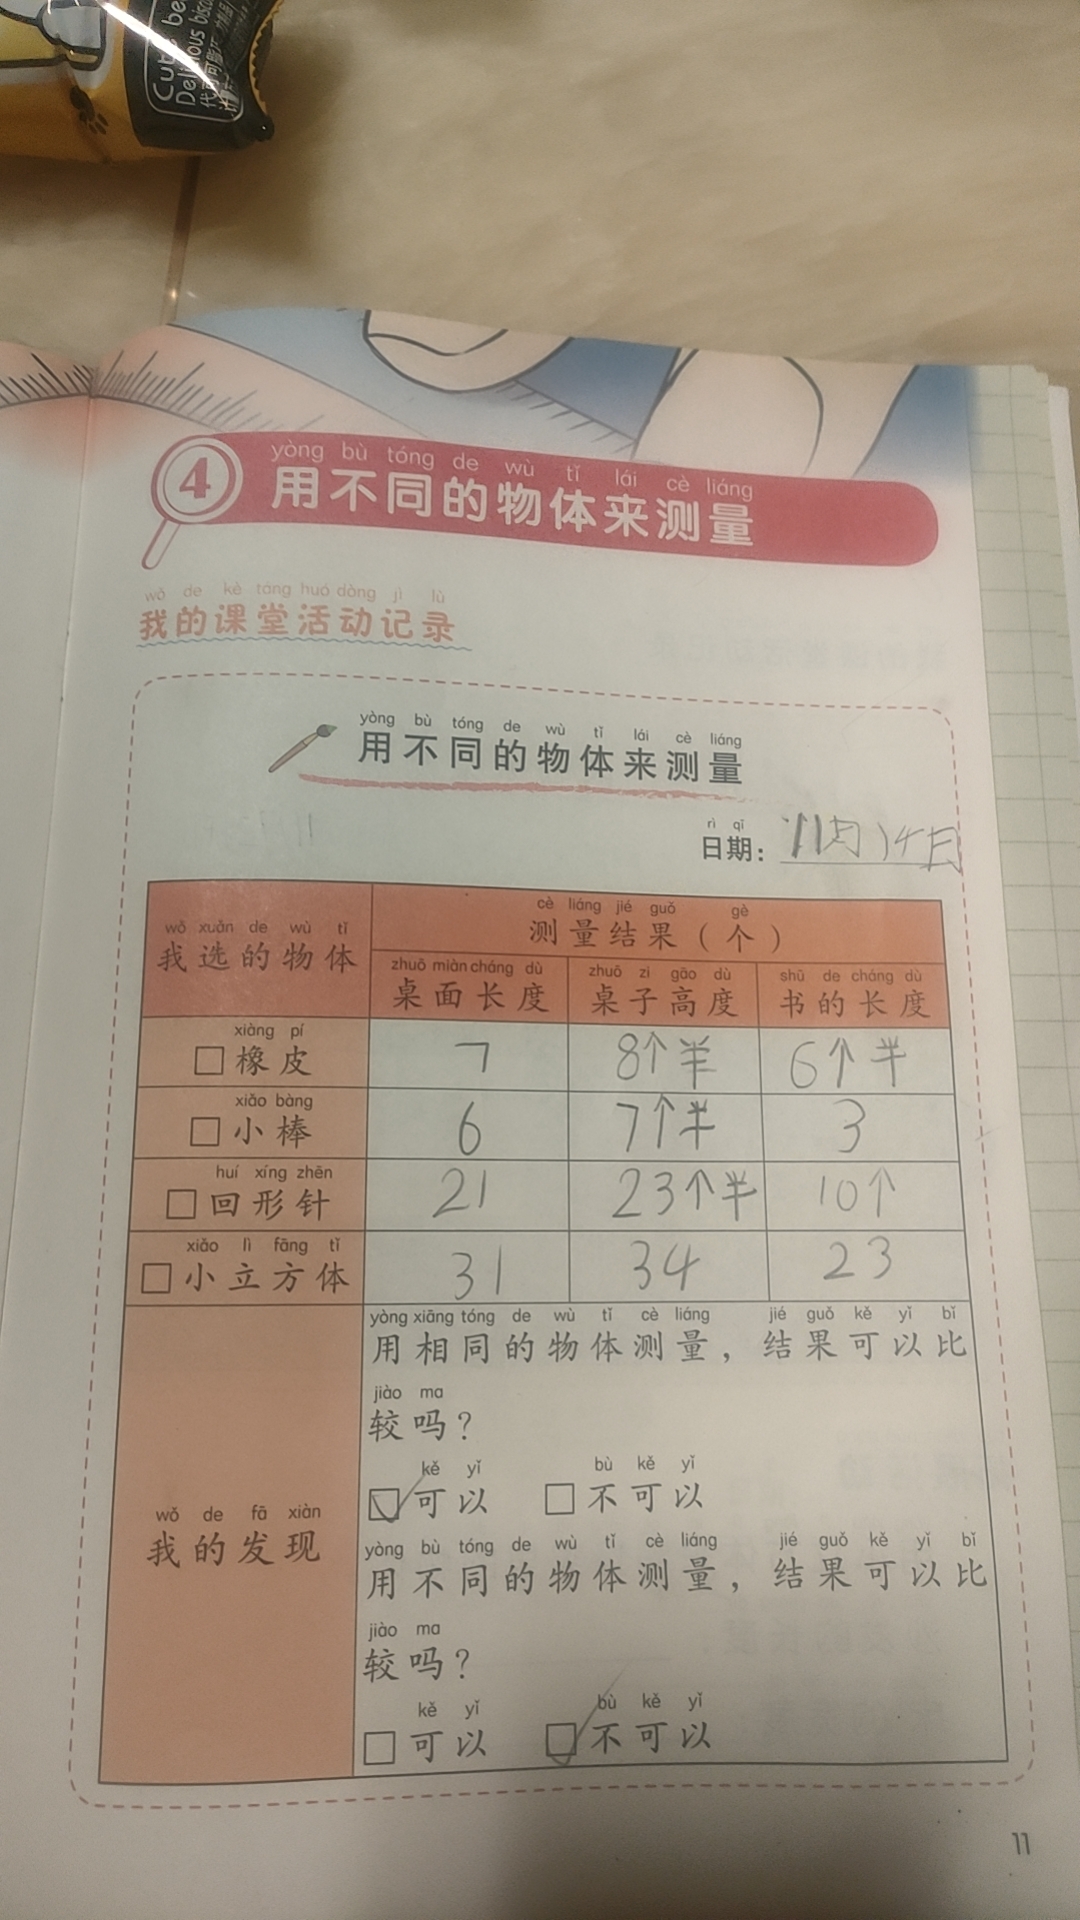 Cu
Delicious bisc
代可可脂
yòng bù tóng de wù tǐ lái cè liáng
4 用不同的物体来测量
wǒ de kè táng huó dòng jì lù
我的课堂活动记录
yòng bù tóng de wù tǐ lái cè liáng
用不同的物体来测量
rì qī
日期: 11月14日
wǒ xuǎn de wù tǐ
我选的物体
cè liáng jié guǒ gè
测量结果(个)
zhuō miàn cháng dù zhuō zi gāo dù shū de cháng dù
桌面长度 桌子高度 书的长度
xiàng pí
□橡皮 7 8个半 6个半
xiǎo bàng
□小棒 6 7个半 3
huí xíng zhēn
□回形针 21 23个半 10个
xiǎo lì fāng tǐ
□小立方体 31 34 23
wǒ de fā xiàn
我的发现
yòng xiāng tóng de wù tǐ cè liáng jié guǒ kě yǐ bǐ
用相同的物体测量，结果可以比
jiào ma
较吗？
kě yǐ bù kě yǐ
☑可以 □不可以
yòng bù tóng de wù tǐ cè liáng jié guǒ kě yǐ bǐ
用不同的物体测量，结果可以比
jiào ma
较吗？
kě yǐ bù kě yǐ
□可以 ☑不可以
11